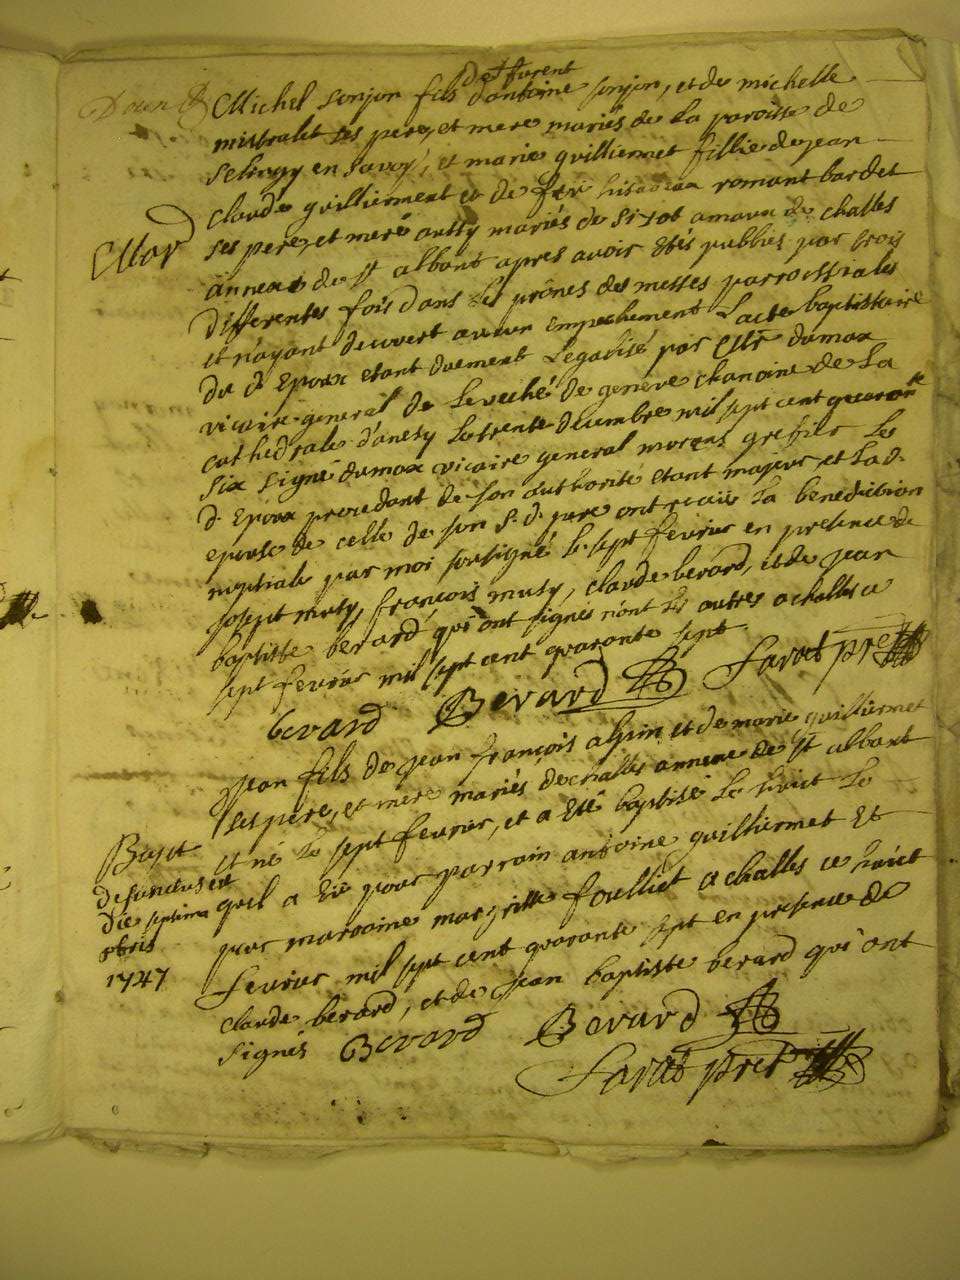 de ffurent
Michel sonjon fils d'antoine sonjon, et de michelle
mistralet ses pere, et mere mariés de la paroisse de
Selingy en Savoy, et marie guilliermet fillie de jean
claude guilliermet et de romant bardet
Mar
ses pere, et mere aussy mariés de de challes
annexe de st albant apres avoir étés publiés par trois
differentes fois dans les prônes des messes parroissiales
et n'ayant decouvert aucun empechement l'acte baptistaire
du d. Epoux etant duement Legalisé par Mr dumax
vicaire general de Leveché de geneve chanoine de La
cathedrale d'anesy le trente decembre mil sept cent quarante
six signé dumax vicaire general morens grefier les
d. Epoux procedant de son authorité etant majeur et la d.
epouse de celle de son s. d. pere ont recuis la benediction
nuptiale par moi sousigné le sept fevrier en presence de
josept musy, françois musy, claude berard, et de jean
baptiste berard qui ont signés n'ont les autres a challes ce
sept fevrier mil sept cent quarante sept
berard Berard Savat pre
Jean fils de jean françois alpin et de marie guilliermet
ses pere, et mere mariés de challes annexe de st albant
Bapt
et né le sept fevrier, et a eté baptisé le huict le
defunctus est
die septima
qu'il a eu pour parrain antoine guilliermet et
8bris
1747
pour marraine margritte foulliet a challes ce huict
fevrier mil sept cent quarante sept en presence de
claude berard, et de jean baptiste berard qui ont
signés Berard Berard
Savat pret